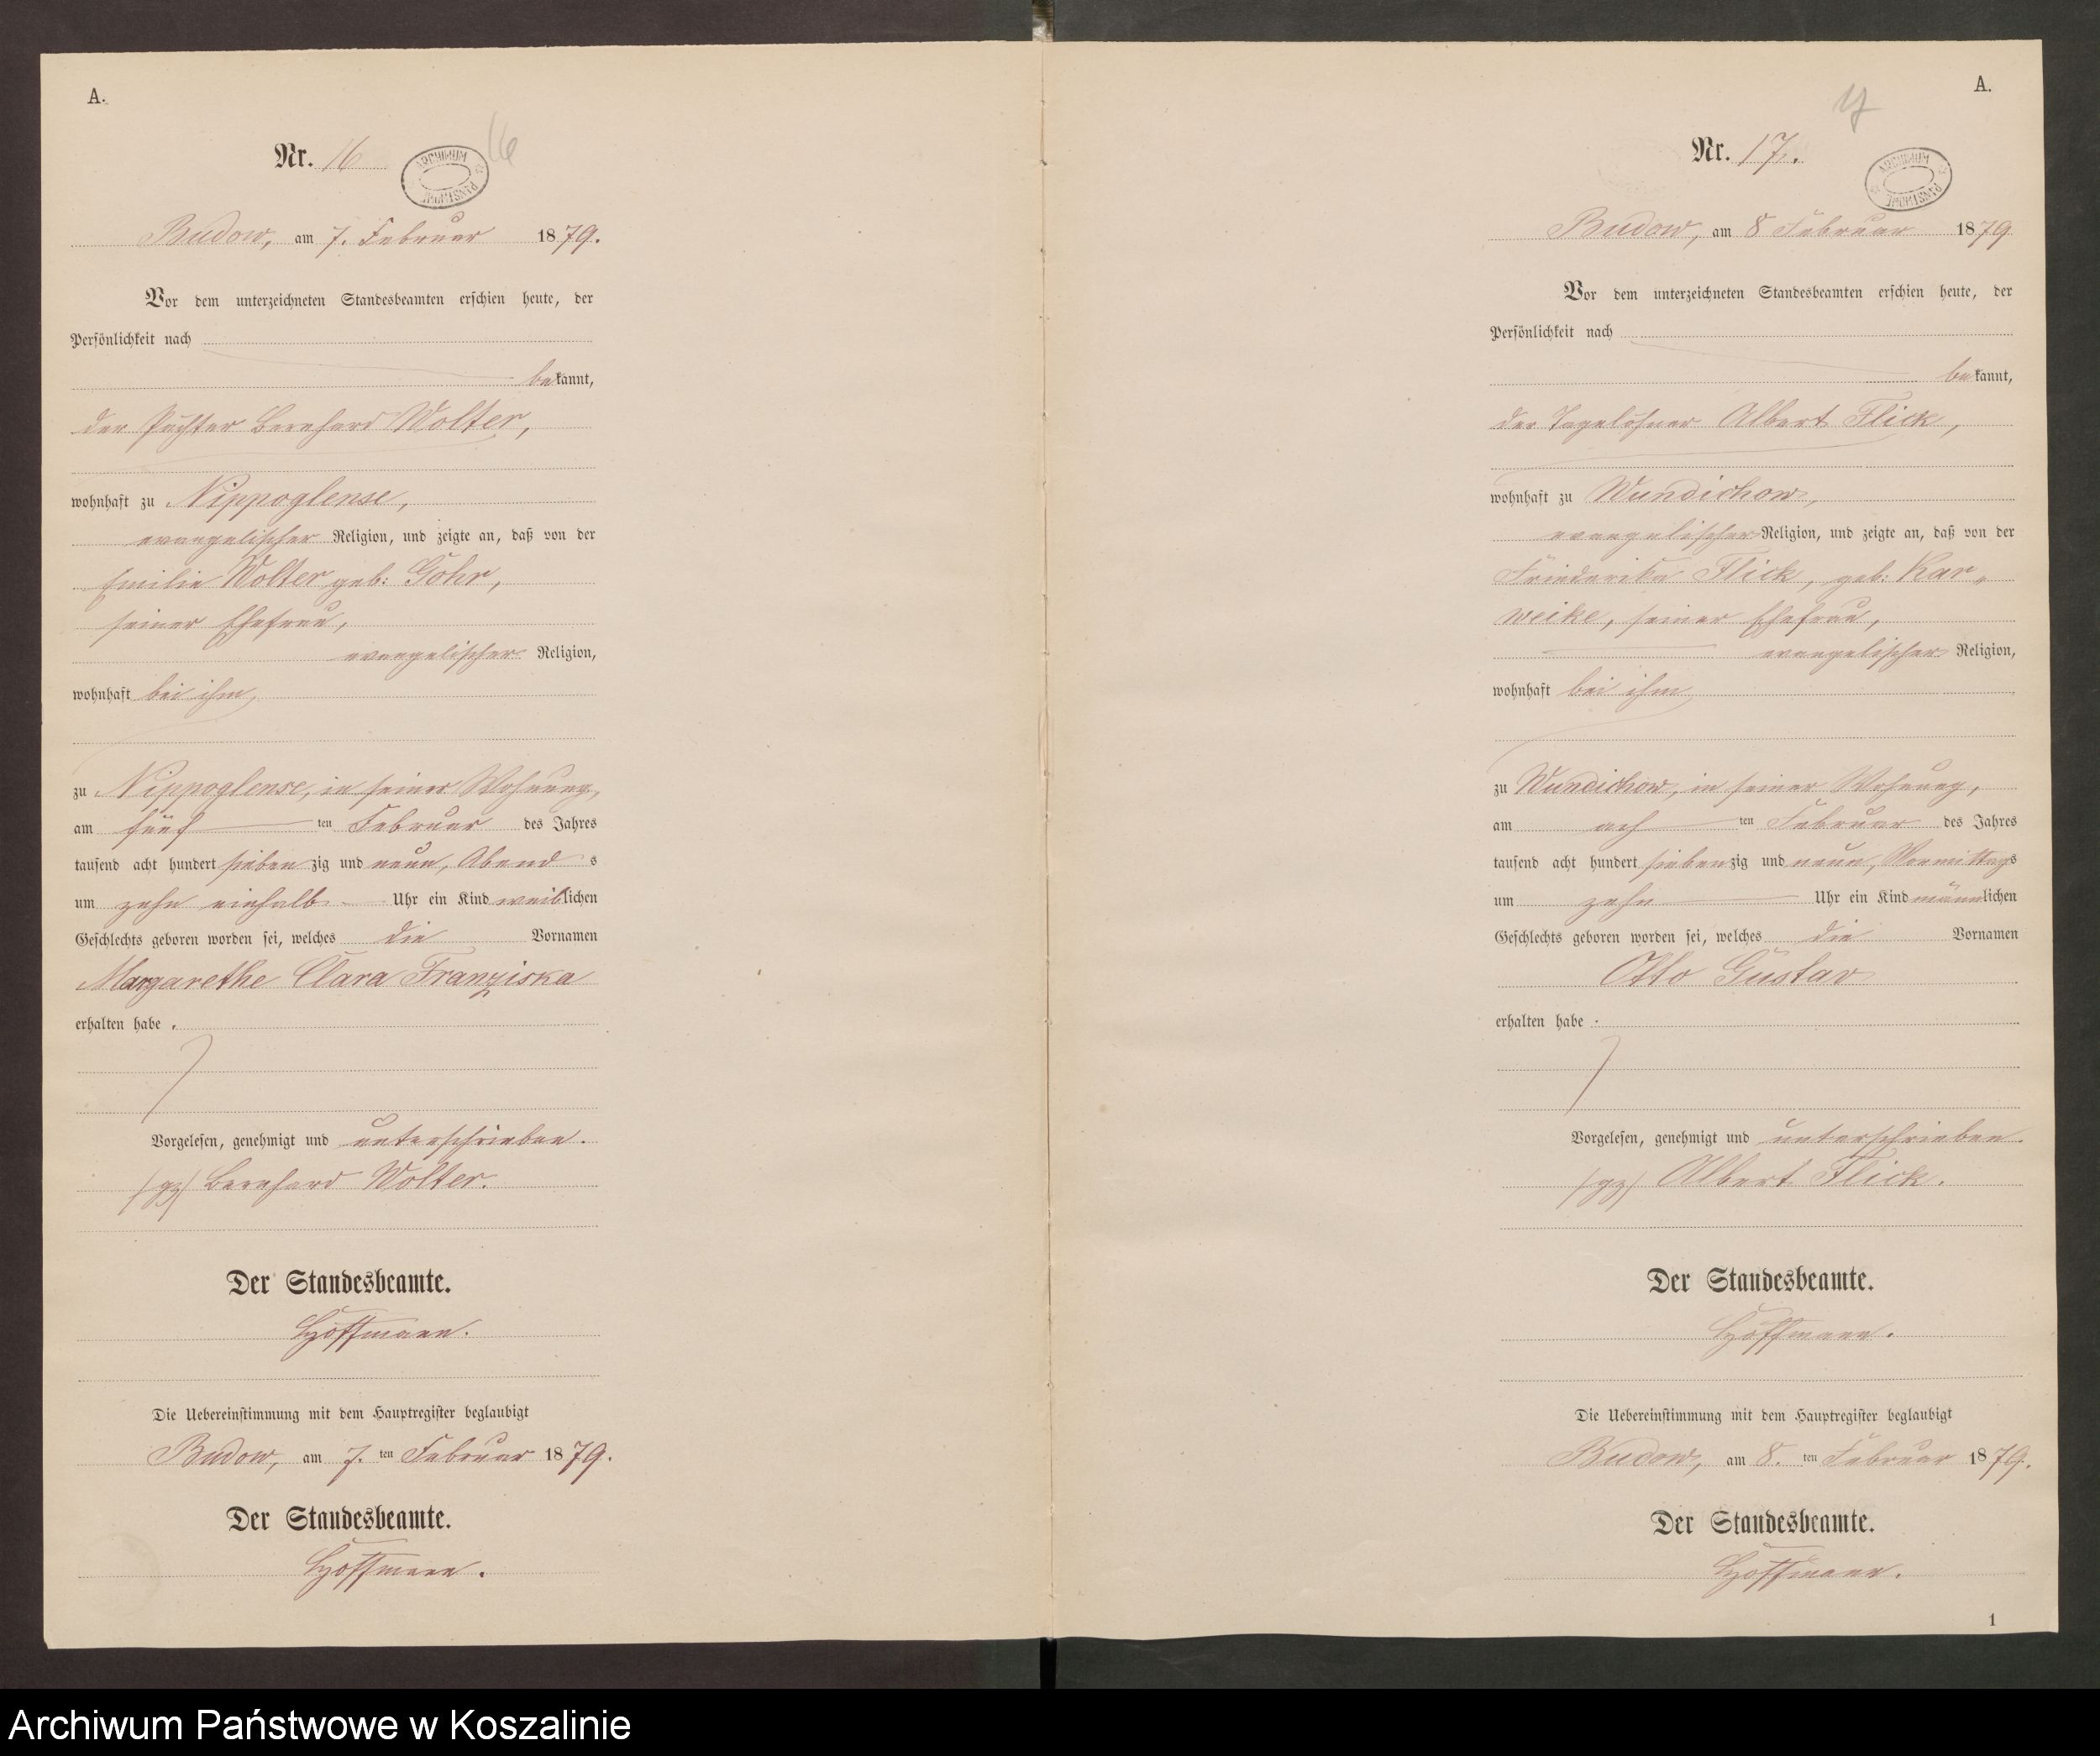 A.
16
Nr. 16
ARCHIWUM PAŃSTWOWE
Budow, am 7. Februar 1879.
Vor dem unterzeichneten Standesbeamten erschien heute, der
Persönlichkeit nach
bekannt,
der Pächter Bernhard Wolter,
wohnhaft zu Nippoglense,
evangelischer Religion, und zeigte an, daß von der
Emilie Wolter geb: Gohr,
seiner Ehefrau,
evangelischer Religion,
wohnhaft bei ihm,
zu Nippoglense, in seiner Wohnung,
am fünf ten Februar des Jahres
tausend acht hundert siebenzig und neun, Abends
um zehn einhalb Uhr ein Kind weiblichen
Geschlechts geboren worden sei, welches die Vornamen
Margarethe Clara Franziska
erhalten habe.
Vorgelesen, genehmigt und unterschrieben.
(gz) Bernhard Wolter.
Der Standesbeamte.
Hoffmann.
Die Uebereinstimmung mit dem Hauptregister beglaubigt
Budow, am 7. ten Februar 1879.
Der Standesbeamte.
Hoffmann.
A.
17
Nr. 17.
ARCHIWUM PAŃSTWOWE
Budow, am 8 Februar 1879
Vor dem unterzeichneten Standesbeamten erschien heute, der
Persönlichkeit nach
bekannt,
der Tagelöhner Albert Flick,
wohnhaft zu Wundichow,
evangelischer Religion, und zeigte an, daß von der
Friederike Flick, geb: Kar-
weike, seiner Ehefrau,
evangelischer Religion,
wohnhaft bei ihm
zu Wundichow, in seiner Wohnung,
am ach ten Februar des Jahres
tausend acht hundert siebenzig und neun, Vormittags
um zehn Uhr ein Kind männlichen
Geschlechts geboren worden sei, welches die Vornamen
Otto Gustav
erhalten habe.
Vorgelesen, genehmigt und unterschrieben.
(gz) Albert Flick.
Der Standesbeamte.
Hoffmann.
Die Uebereinstimmung mit dem Hauptregister beglaubigt
Budow, am 8. ten Februar 1879.
Der Standesbeamte.
Hoffmann.
1
Archiwum Państwowe w Koszalinie